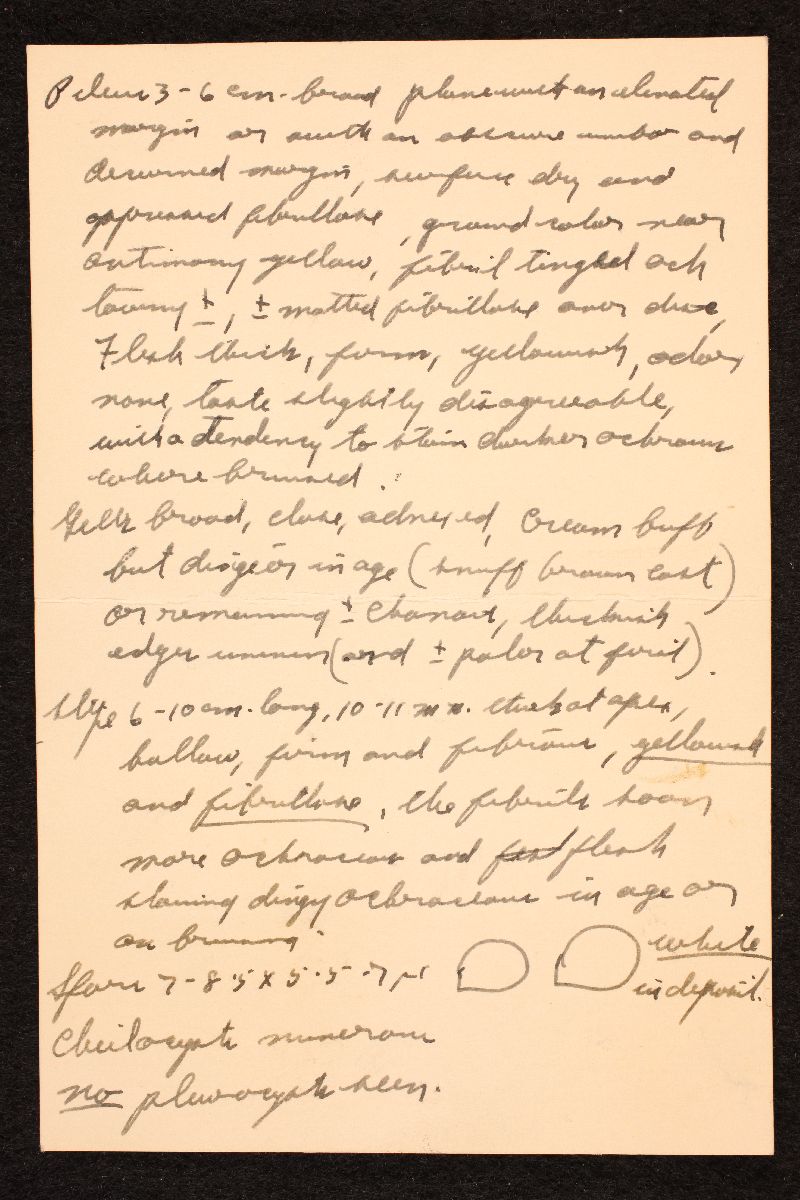 Pileus 3-6 cm. broad plane with an elevated
margin or with an obscure umbo and
decurved margin, surface dry and
appressed fibrillose, ground color near
antimony yellow, fibril tinged och
tawny ±, ± matted fibrillose over disc,
Flesh thick, firm, yellowish, odor
none, taste slightly disagreeable,
with a tendency to stain darker ochrous
where bruised.
Gills broad, close, adnexed, Cream buff
but dingier in age (snuff brown cast)
or remaining ± Chamois, thickish
edges uneven (and ± paler at first).
Stipe 6-10 cm. long, 10-11 mm. thick at apex,
hollow, firm and fibrous, yellowish
and fibrillose, the fibrils soon
more ochraceous and flesh
staining dingy ochraceous in age or
on bruising.
white
Spores 7-8.5 x 5.5-7 µ
in deposit.
Cheilocyst numerous
no pleurocyst seen.